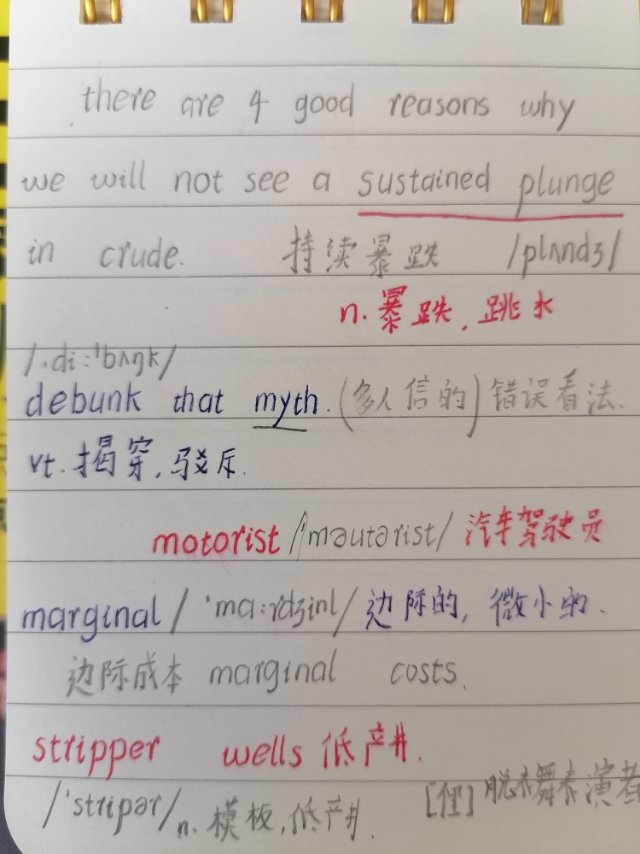 there are 4 good reasons why
we will not see a sustained plunge
in crude. 持续暴跌 /plʌndʒ/
n. 暴跌, 跳水
/.di:'bʌŋk/
debunk that myth. (多人信的) 错误看法.
vt. 揭穿, 驳斥.
motorist /'məutərist/ 汽车驾驶员
marginal / 'ma:rdʒinl/ 边际的, 微小的.
边际成本 marginal costs.
stripper wells 低产井.
/'stripər/ n. 模板, 低产井. [俚] 脱衣舞表演者